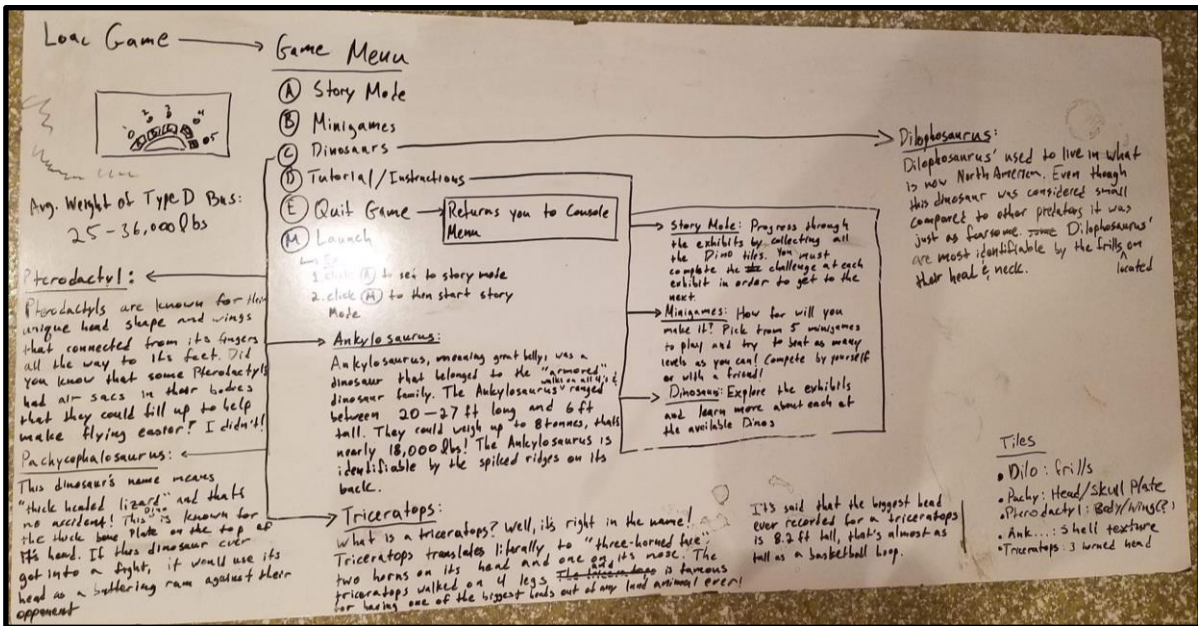 Load Game
Game Menu
A Story Mode
B Minigames
C Dinosaurs
D Tutorial/Instructions
E Quit Game
Returns you to Console
Menu
M Launch
1. click A to set to story mode
2. click M to then start story
Mode
0 1 2 3 4 5
Avg. Weight of Type D Bus:
25-36,000 lbs
Pterodactyl:
Pterodactyls are known for their
unique head shape and wings
that connected from its fingers
all the way to its feet. Did
you know that some Pterodactyls
had air sacs in their bodies
that they could fill up to help
make flying easier? I didn't!
Pachycephalosaurus:
This dinosaur's name means
"thick headed lizard" and thats
no accident! This dino is known for
the thick bone plate on the top of
it's head. If this dinosaur ever
got into a fight, it would use its
head as a battering ram against their
opponent
Ankylosaurus:
Ankylosaurus, meaning great belly, was a
dinosaur that belonged to the "armored"
dinosaur family. The Ankylosaurus walks on all 4's & ranged
between 20-27 ft long and 6 ft
tall. They could weigh up to 8 tonnes, thats
nearly 18,000 lbs! The Ankylosaurus is
identifiable by the spiked ridges on its
back.
Triceratops:
What is a triceratops? Well, it's right in the name!
Triceratops translates literally to "three-horned face"
two horns on its head and one on its nose. The
triceratops walked on 4 legs and is famous
for having one of the biggest heads out of any land animal ever!
It's said that the biggest head
ever recorded for a triceratops
is 8.2 ft tall, that's almost as
tall as a basketball hoop.
Story Mode: Progress through
the exhibits by collecting all
the Dino tiles. You must
complete the challenge at each
exhibit in order to get to the
next.
Minigames: How far will you
make it? Pick from 5 minigames
to play and try to beat as many
levels as you can! Compete by yourself
or with a friend!
Dinosaurs: Explore the exhibits
and learn more about each of
the available Dinos
Dilophosaurus:
Dilophosaurus' used to live in what
is now North American. Even though
this dinosaur was considered small
compared to other predators it was
just as fearsome. Dilophosaurus'
are most identifiable by the frills located on
their head & neck.
Tiles
• Dilo: frills
• Pachy: Head/Skull Plate
• Pterodactyl: Body/Wing(?)
• Ank...: Shell texture
• Triceratops: 3 horned head